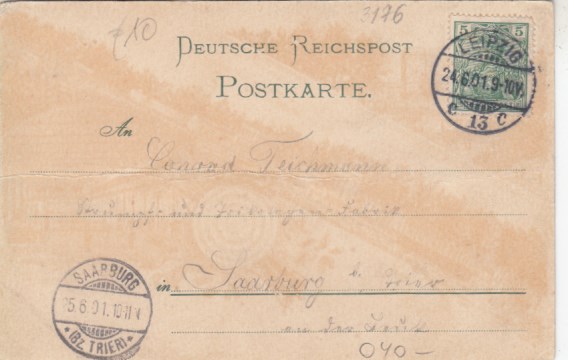 £10
3176
5 5
LEIPZIG
24.6.01.9-10V.
C 13 C
DEUTSCHE REICHSPOST
POSTKARTE.
An
Conrad Teichmann
und Fabrik
SAARBURG
25.6.01.10-11V
*(BZ. TRIER)*
in Saarburg b. Trier
an der
040-